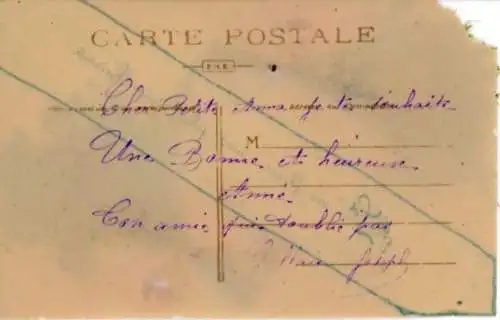 CARTE POSTALE
Cher Petite Anna je te souhaite
M
Une Bonne et heureuse
Anné
Ton amie qui t'oublie pas
Joseph